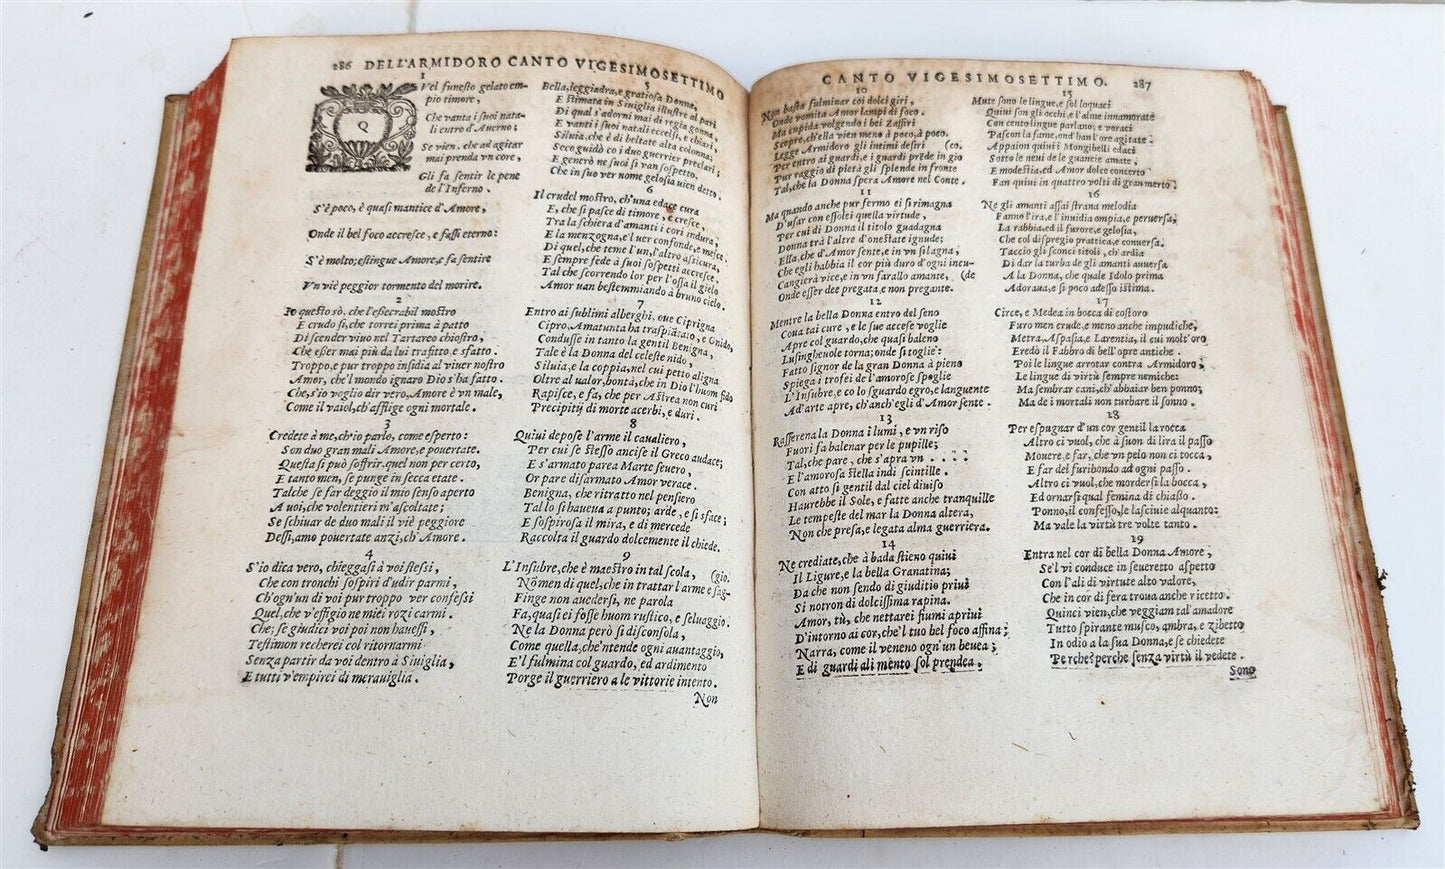 286 DELL'ARMIDORO CANTO VIGESIMOSETTIMO
1
Q
Vel funeſto gelato em-
pio timore,
Che vanta i ſuoi nata-
li entro d'Auerno;
Se vien, che ad agitar
mai prenda vn core,
Gli fa ſentir le pene
de l'Inferno.
S'è poco, è quaſi mantice d'Amore,
Onde il bel foco accreſce, e faſſi eterno:
S'è molto; eſtingue Amore, e fa ſentire
Vn viè peggior tormento del morire.
2
Io queſto sò, che l'eſſecrabil moſtro
E crudo ſi, che torrei prima à patto
Di ſcender viuo nel Tartareo chioſtro,
Che eſſer mai più da lui trafitto, e sfatto.
Troppo, e pur troppo inſidia al viuer noſtro
Amor, che'l mondo ignaro Dio s'ha fatto.
Che, s'io voglio dir vero, Amore è vn male,
Come il vaiol, ch'afflige ogni mortale.
3
Credete à me, ch'io parlo, come eſperto:
Son duo gran mali Amore, e pouertate.
Queſta ſi può ſoffrir, quel non per certo,
E tanto men, ſe punge in ſecca etate.
Talche ſe far deggio il mio ſenſo aperto
A voi, che volentieri m'aſcoltate;
Se ſchiuar de duo mali il viè peggiore
Deſſi, amo pouertate anzi, ch'Amore.
4
S'io dica vero, chieggaſi à voi ſteſſi,
Che con tronchi ſoſpiri d'vdir parmi,
Ch'ogn'un di voi pur troppo ver confeſſi
Quel, che v'effigio ne miei rozi carmi.
Che; ſe giudici voi poi non haueſſi,
Teſtimon recherei col ritornarmi
Senza partir da voi dentro à Siuiglia,
E tutti v'empirei di merauiglia.
5
Bella, leggiadra, e gratioſa Donna,
E ſtimata in Siuiglia illuſtre al pari
Di qual s'adorni mai di regia gonna,
E vanti i ſuoi natali eccelſi, e chiari,
Siluia, che è di beltate alta colonna;
Seco guidò co i duo guerrier preclari;
E generò ne ſuoi ſi van ſoſpetto,
Che in ſuo ver nome geloſia vien detto.
6
Il crudel moſtro, ch'una edace cura
E, che ſi paſce di timore, e creſce,
Tra la ſchiera d'amanti i cori indura,
E la menzogna, e'l uer confonde, e meſce:
Di quel, che teme l'un, l'altro aſſicura,
E ſempre fede à ſuoi ſoſpetti accreſce.
Tal che ſcorrendo lor per l'oſſa il gielo
Amor uan beſtemmiando à bruno cielo.
7
Entro ai ſublimi alberghi, oue Ciprigna
Cipro, Amatunta ha traſpiãtato, e Gnido,
Conduſſe in tanto la gentil Benigna,
Tale è la Donna del celeſte nido,
Siluia, e la coppia, nel cui petto aligna
Oltre al ualor, bontà, che in Dio l'huom fido
Rapiſce, e fa, che per Aſtrea non curi
Precipitij di morte acerbi, e duri.
8
Quiui depoſe l'arme il caualiero,
Per cui ſe ſteſſo anciſe il Greco audace;
E s'armato parea Marte ſeuero,
Or pare diſarmato Amor verace.
Benigna, che ritratto nel penſiero
Tal lo ſi haueua a punto; arde, e ſi sface;
E ſoſpiroſa il mira, e di mercede
Raccolta il guardo dolcemente il chiede.
9
L'Inſubre, che è maeſtro in tal ſcola, (gio.
Nõmen di quel, che in trattar l'arme e ſag-
Finge non auederſi, ne parola
Fa, quaſi ei foſſe huom ruſtico, e ſeluaggio.
Ne la Donna però ſi diſconſola,
Come quella, che'ntende ogni auantaggio,
E'l fulmina col guardo, ed ardimento
Porge il guerriero a le vittorie intento.
Non
CANTO VIGESIMOSETTIMO. 287
10
Non baſta fulminar coi dolci giri,
Onde vomita Amor lampi di foco.
Ma cupida volgendo i bei Zaffiri
Scopre, ch'ella vien meno à poco, à poco.
Legge Armidoro gli intimi deſiri (co,
Per entro ai guardi, e i guardi prẽde in gio
Pur raggio di pietà gli ſplende in fronte
Tal, che la Donna ſpera Amore nel Conte.
11
Ma quando anche pur fermo ei ſi rimagna
D'uſar con eſſolei quella virtude,
Per cui di Donna il titolo guadagna
Donna trà l'altre d'oneſtate ignude;
Ella, che d'Amor ſente, e in vn ſi lagna,
Che egli habbia il cor più duro d'ogni incu-
Cangierà vice, e in vn farallo amante, (de
Onde eſſer dee pregata, e non pregante.
12
Mentre la bella Donna entro del ſeno
Coua tai cure, e le ſue acceſe voglie
Apre col guardo, che quaſi baleno
Luſingheuole torna; onde ſi toglie:
Fatto ſignor de la gran Donna à pieno
Spiega i trofei de l'amoroſe ſpoglie
L'Inſubre, e co lo ſguardo egro, e languente
Ad'arte apre, ch'anch'egli d'Amor ſente.
13
Raſſerena la Donna i lumi, e vn riſo
Fuori fa balenar per le pupille;
Tal, che pare, che s'apra vn . . . .
E l'amoroſa ſtella indi ſcintille.
Con atto ſi gentil dal ciel diuiſo
Haurebbe il Sole, e fatte anche tranquille
Le tempeſte del mar la Donna altera,
Non che preſa, e legata alma guerriera.
14
Ne crediate, che à bada ſtieno quiui
Il Ligure, e la bella Granatina;
Da che non ſendo di giuditio priui
Si notron di dolciſſima rapina.
Amor, tù, che nettarei fiumi apriui
D'intorno ai cor, che'l tuo bel foco affina;
Narra, come il veneno ogn'un beuea;
E di guardi alimento ſol prendea.
15
Mute ſono le lingue, e ſol loquaci
Quiui ſon gli occhi, e l'alme innamorate
Con cento lingue parlano; e voraci
Paſcon la fame, ond'han l'ore agitate:
Appaion quiui i Mongibelli edaci
Sotto le neui de le guancie amate,
E modeſtia, ed Amor dolce concerto
Fan quiui in quattro volti di gran merto.
16
Ne gli amanti aſſai ſtrana melodia
Fanno l'ira, e l'inuidia empia, e peruerſa;
La rabbia, ed il furore, e geloſia,
Che col diſpregio prattica, e conuerſa.
Taccio gli ſconci titoli, ch'ardia
Di dar la turba de gli amanti auuerſa
A la Donna, che quale Idolo prima
Adoraua, e ſi poco adeſſo iſtima.
17
Circe, e Medea in bocca di coſtoro
Furo men crude, e meno anche impudiche,
Metra, Aſpaſia, e Larentia, il cui molt'oro
Eredò il Fabbro di bell'opre antiche.
Poi le lingue arrotar contra Armidoro,
Le lingue di virtù ſempre nemiche:
Ma ſembrar cani, ch'abbaiar ben ponno,
Ma de i mortali non turbare il ſonno.
18
Per eſpugnar d'un cor gentil la rocca
Altro ci vuol, che à ſuon di lira il paſſo
Mouere, e far, che vn pelo non ci tocca,
E far del furibondo ad ogni paſſo.
Altro ci vuol, che morderſi la bocca,
Ed ornarſi qual femina di chiaſſo.
Ponno, il confeſſo, le laſciuie alquanto:
Ma vale la virtù tre volte tanto.
19
Entra nel cor di bella Donna Amore,
Se'l vi conduce in ſeueretto aſpetto
Con l'ali di virtute alto valore,
Che in cor di fera troua anche ricetto.
Quinci vien, che veggiam tal'amadore
Tutto ſpirante muſco, ambra, e zibetto
In odio a la ſua Donna, e ſe chiedete
Perche? perche ſenza virtù il vedete.
Sono